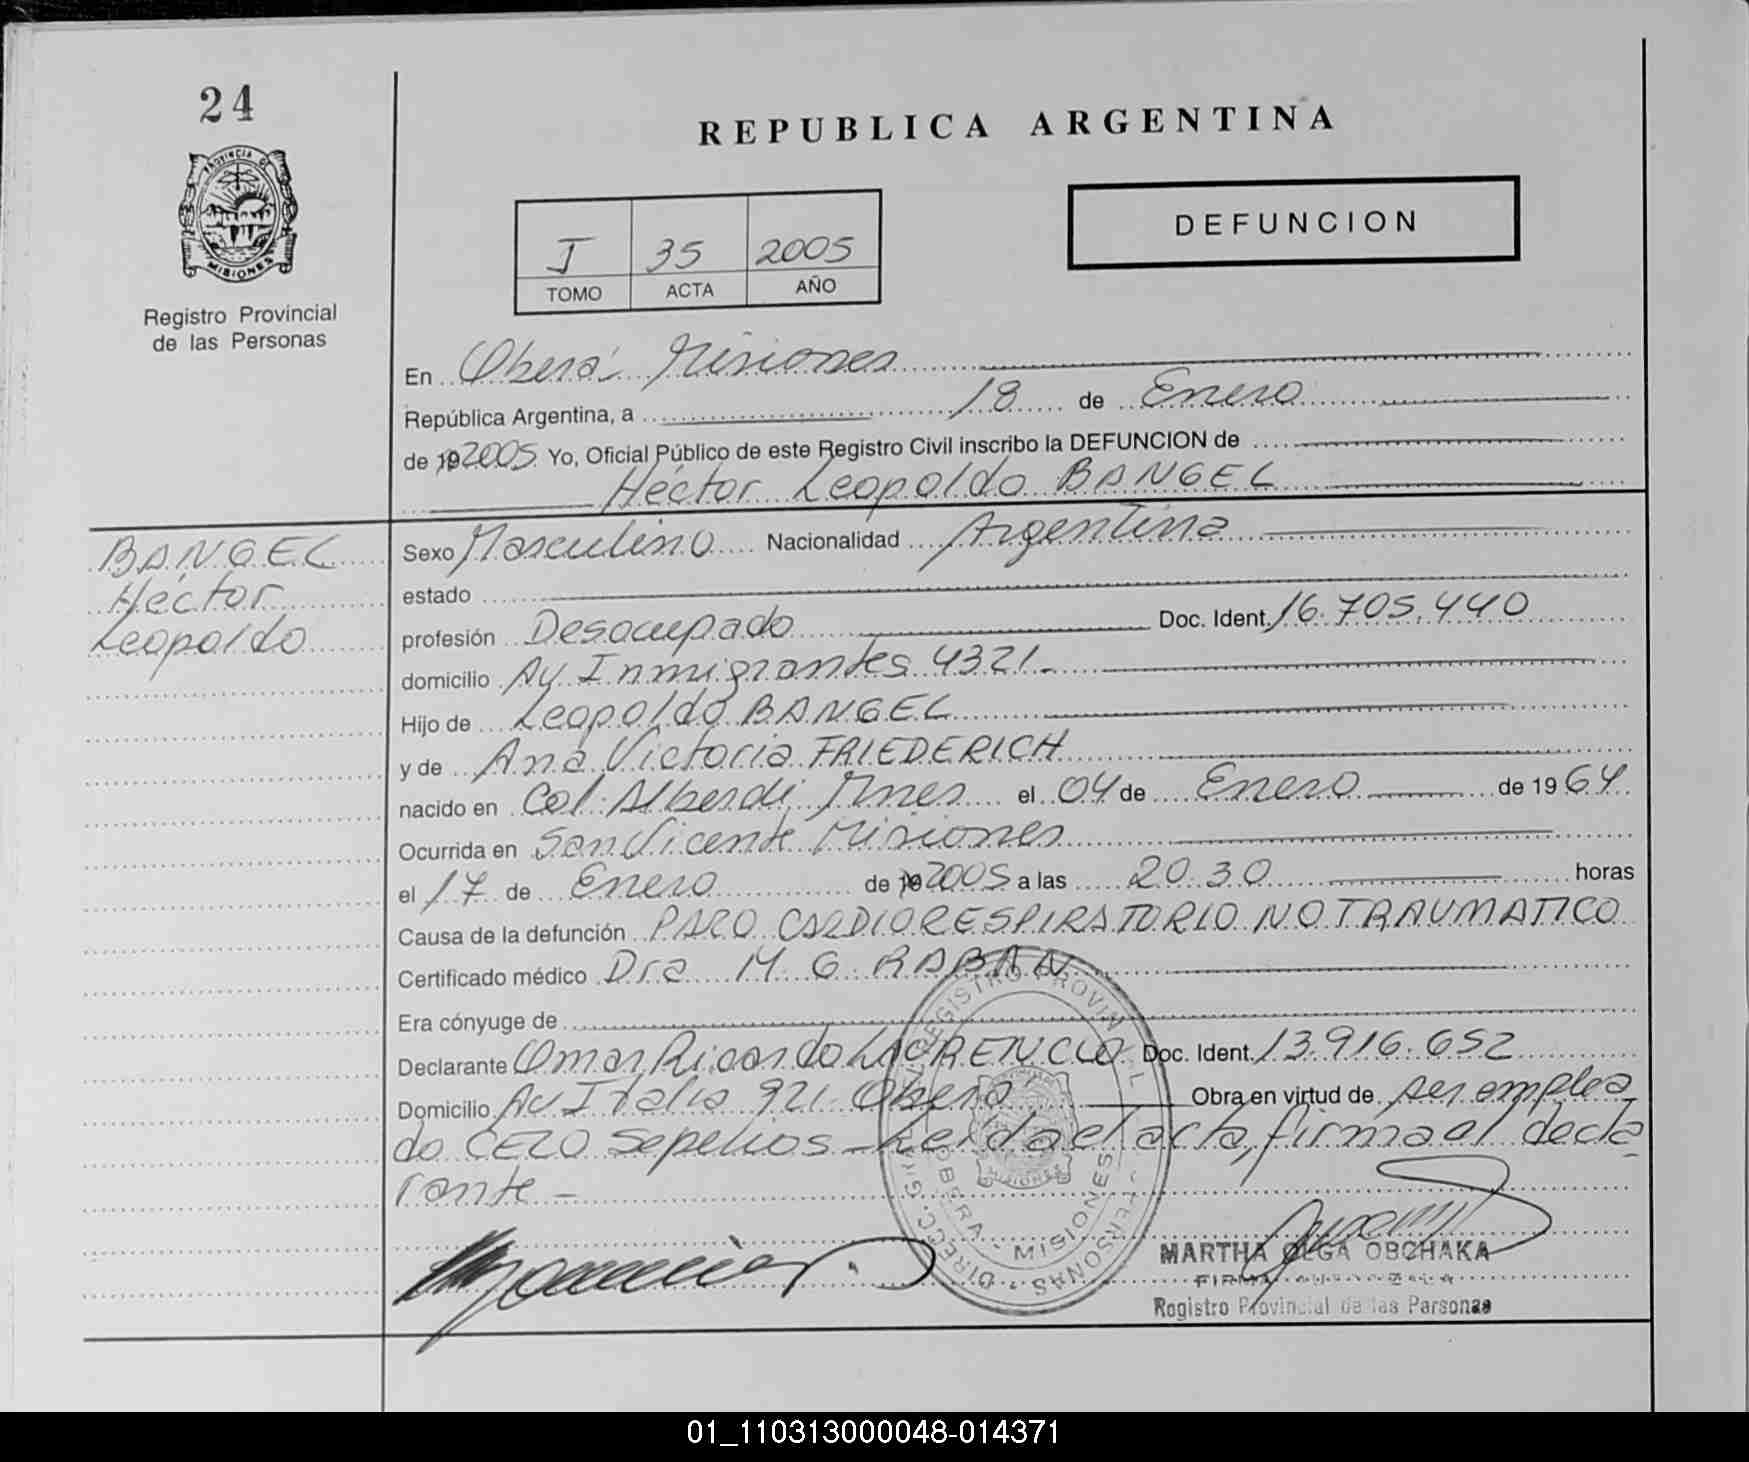 24
PROVINCIA DE
MISIONES
Registro Provincial
de las Personas
REPUBLICA ARGENTINA
I 35 2005
TOMO ACTA AÑO
DEFUNCION
En Oberá Misiones
República Argentina, a 18 de Enero
de 19 2005 Yo, Oficial Público de este Registro Civil inscribo la DEFUNCION de
Héctor Leopoldo BANGEL
BANGEL
Héctor
Leopoldo
Sexo Masculino Nacionalidad Argentina
estado
profesión Desocupado Doc. Ident. 16.705.440
domicilio Av Inmigrantes 4321
Hijo de Leopoldo BANGEL
y de Ana Victoria FRIEDERICH
nacido en Col. Alberdi Mnes el 04 de Enero de 1964
Ocurrida en San Vicente Misiones
el 17 de Enero de 19 2005 a las 20.30 horas
Causa de la defunción PARO CARDIORESPIRATORIO NO TRAUMATICO
Certificado médico Dra M. G. RABAN
Era cónyuge de
Declarante Omar Ricardo Doc. Ident. 13.916.652
Domicilio Av Italia 921 Oberá Obra en virtud de ser emplea
do CEZO Sepelios - Leída el acta, firma el decla
rante -
DIRECC. GRAL REGISTRO PROVINCIAL PERSONAS
OBERA - MISIONES
MARTHA OLGA OBCHAKA
FIRMA AUTORIZADA
Registro Provincial de las Personas
01_110313000048-014371